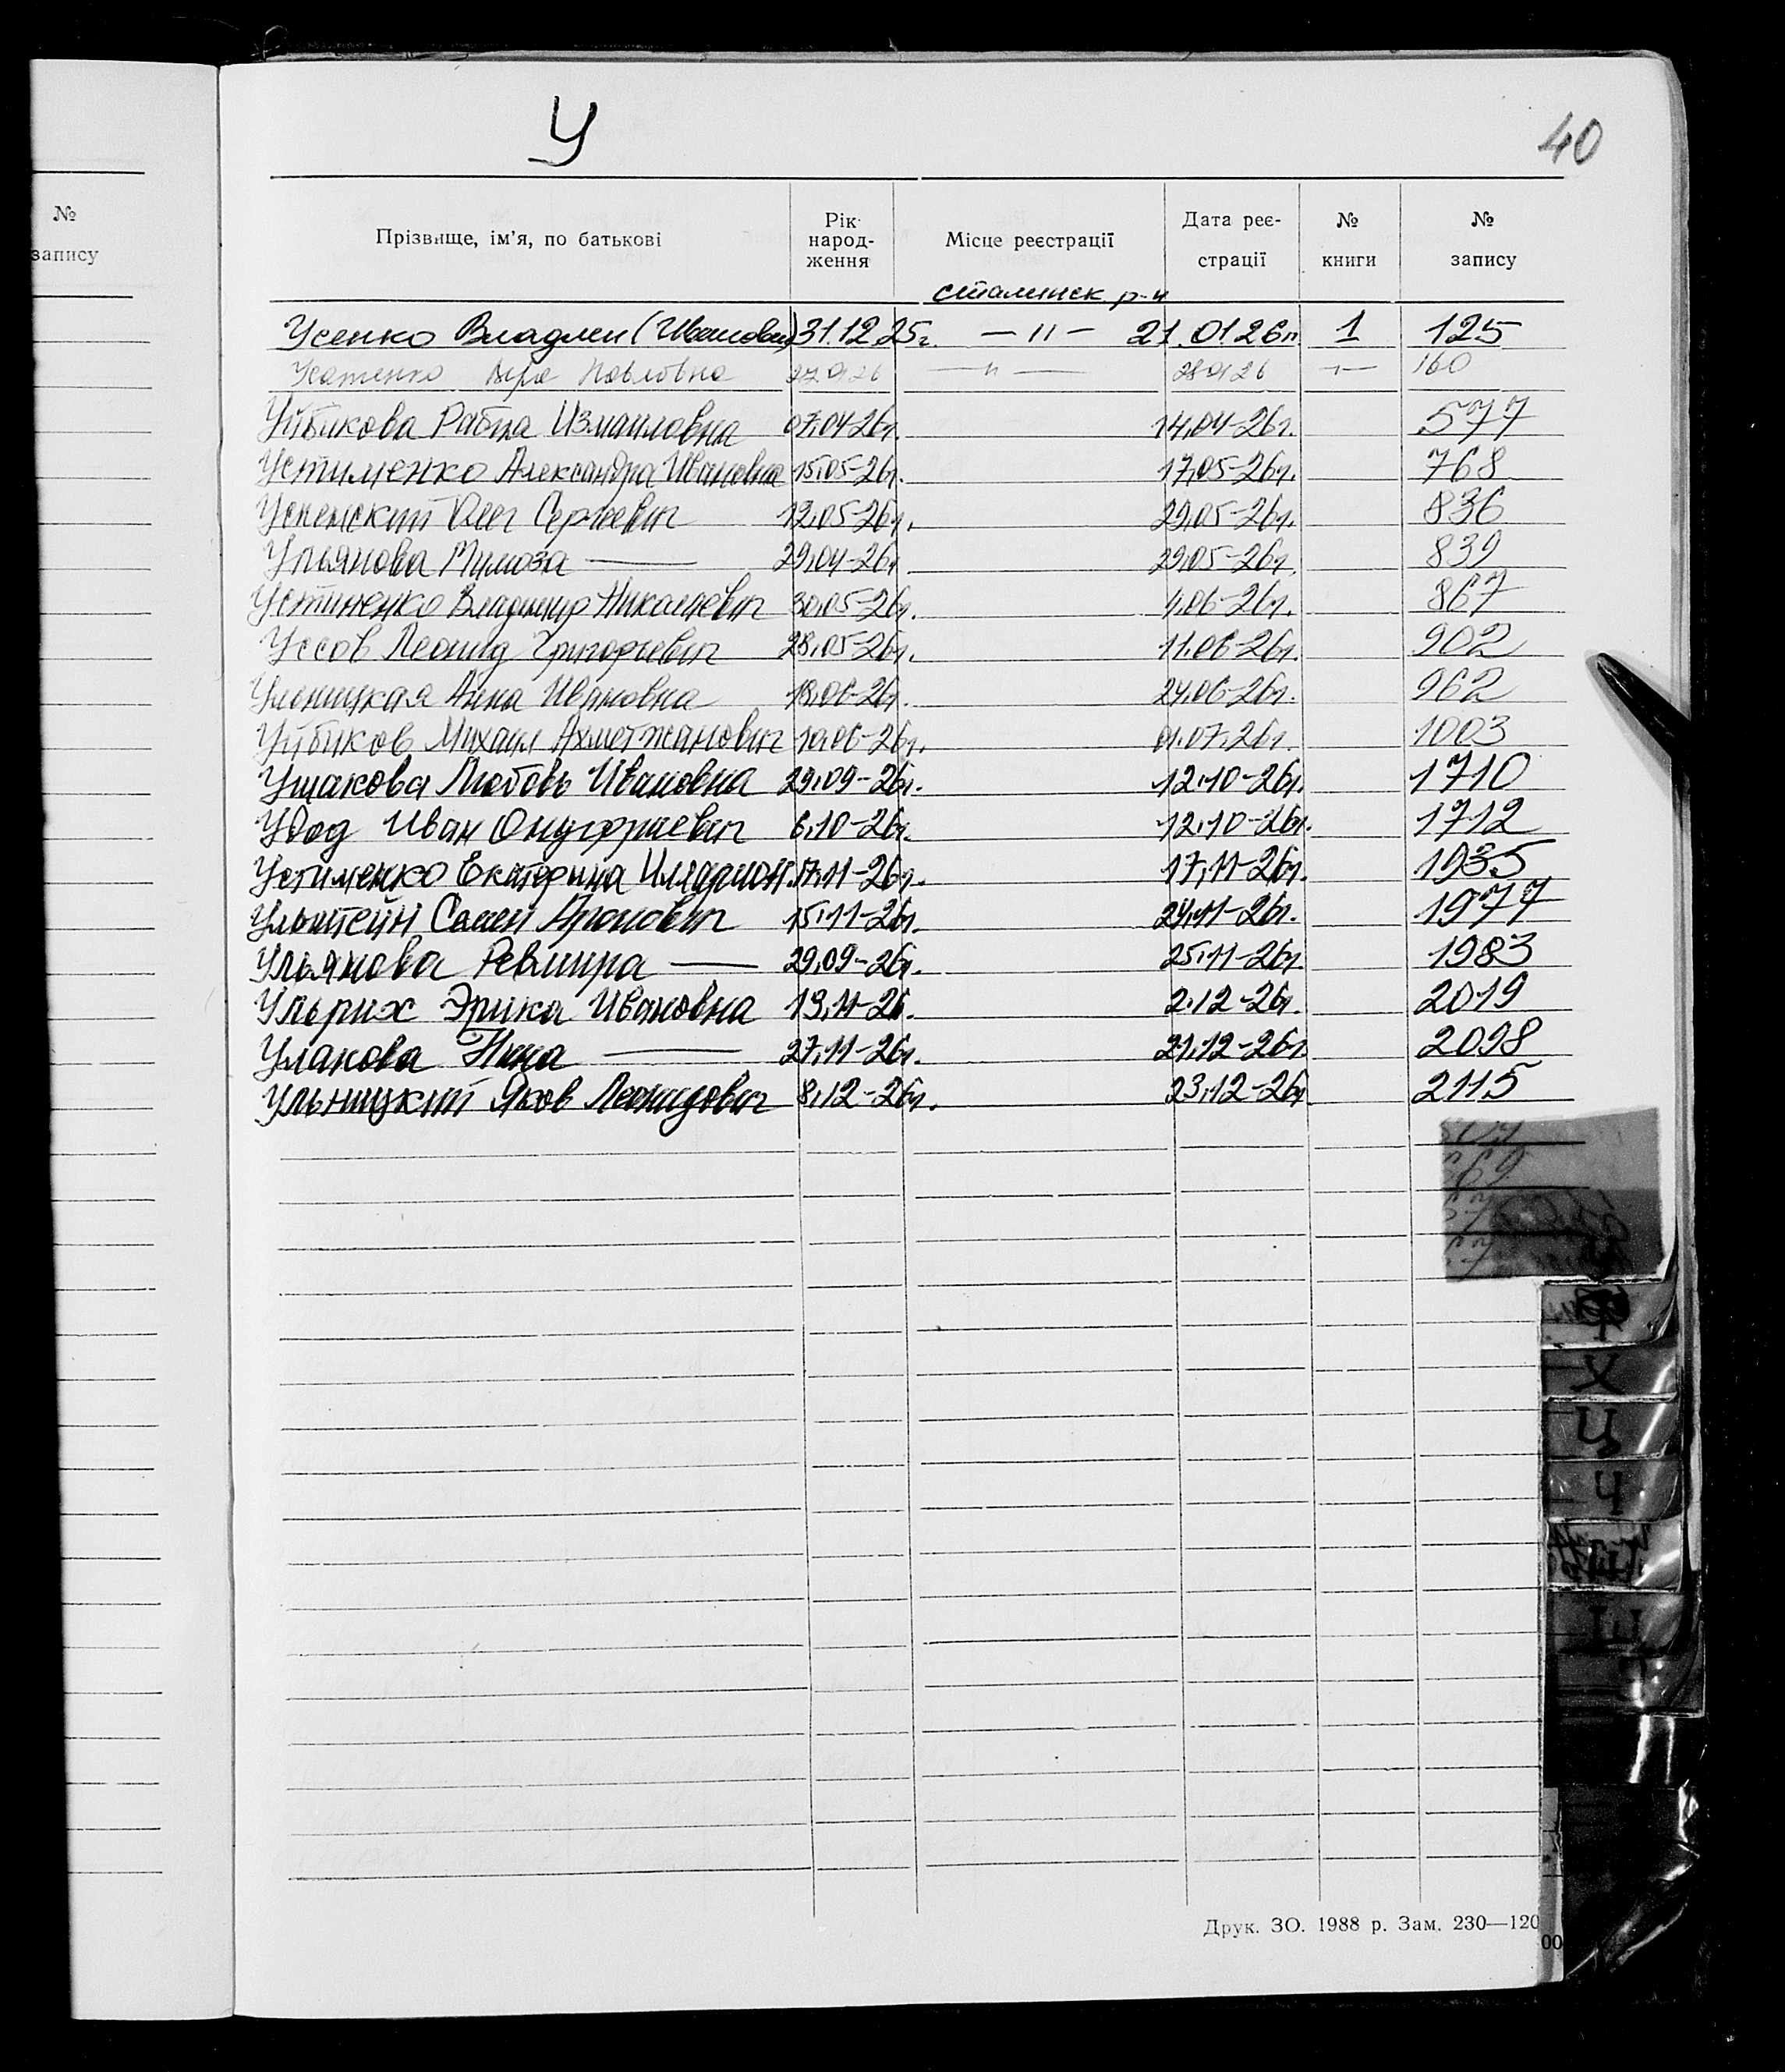 У
40
№
запису
Прізвище, ім'я, по батькові
Рік народ- ження
Місце реєстрації
Дата реє- страції
№ книги
№ запису
сталинск р-н
Усенко Владлен (Иванович) 31.12.25г. — 〃 — 21.01.26г 1 125
Усатенко Вера Павловна 27 01 26 — 〃 — 28 01 26 160
Уйбикова Рабига Измаиловна 07.04-26г. 14.04-26г. 577
Устименко Александра Ивановна 15.05-26г. 17.05-26г. 768
Успенский Олег Сергеевич 12.05-26г. 29.05-26г. 836
Ульянова Мимоза — 29.04-26г 29.05-26г. 839
Устиненко Владимир Николаевич 30.05-26г. 4.06-26г. 867
Уссов Леонид Григорьевич 28.05-26г. 11.06-26г. 902
Улоницкая Анна Ивановна 18.06-26г. 24.06-26г. 962
Уйбиков Михаил Ахметжанович 10.06-26г. 01.07.26г. 1003
Ушакова Любовь Ивановна 29.09-26г. 12.10-26г. 1710
Удод Иван Онуфриевич 6.10-26г. 12.10-26г. 1712
Устименко Екатерина Илларион. 17.11-26г. 17.11-26г. 1935
Ульштейн Самен Аронович 15.11-26г. 24.11-26г. 1977
Ульянова Ревмира — 29.09-26г. 25.11-26г. 1983
Ульрих Эрика Ивановна 19.11-26. 2.12-26г. 2019
Уланова Нина — 27.11-26г. 21.12-26г 2098
Ульницкий Яков Леонидович 8.12-26г. 23.12-26г. 2115
Ф
Х
Ц
Ч
Ш
Щ
Друк. ЗО. 1988 р. Зам. 230—120
00